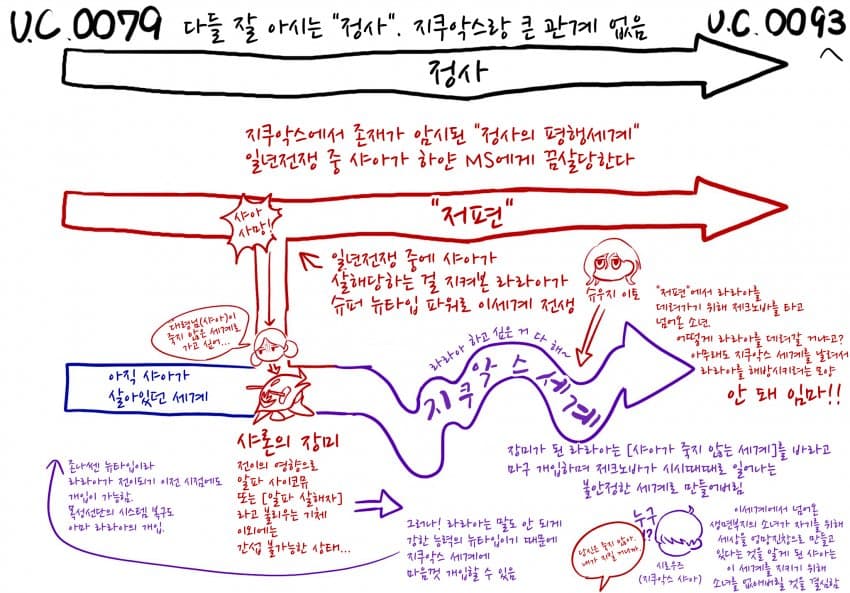 U.C.0079 다들 잘 아시는 "정사". 지쿠악스랑 큰 관계 없음 U.C.0093
정사
지쿠악스에서 존재가 암시된 "정사의 평행세계"
일년전쟁 중 샤아가 하얀 MS에게 끔살당한다
샤아
사망!
"저편"
일년전쟁 중에 샤아가
살해당하는 걸 지켜본 라라아가
슈퍼 뉴타입 파워로 이세계 전생
슈우지 이토
"저편"에서 라라아를
데려가기 위해 제크노바를 타고
넘어온 소년.
어떻게 라라아를 데려갈 거냐고?
아무래도 지쿠악스 세계를 날려서
라라아를 해방시키려는 모양
안 돼 임마!!
대령님(샤아)이
죽지 않은 세계로
가고 싶어...
아직 샤아가
살아있던 세계
라라아 하고 싶은 거 다 해~
지쿠악스 세계
샤론의 장미
전이의 영향으로
알파 사이코뮤
또는 [알파 살해자]
라고 불리우는 기체
이외에는
간섭 불가능한 상태...
존나쎈 뉴타입이라
라라아가 전이되기 이전 시점에도
개입이 가능함.
목성선단의 시스템 복구도
아마 라라아의 개입.
그러나! 라라아는 말도 안 되게
강한 능력의 뉴타입이기 때문에
지쿠악스 세계에
마음껏 개입할 수 있음
장미가 된 라라아는 [샤아가 죽지 않는 세계]를 바라고
마구 개입하며 제크노바가 시시때때로 일어나는
불안정한 세계로 만들어버림
당신은 죽지 않아.
내가 지킬 거니까.
누구
!?
시로우즈
(지쿠악스 샤아)
이세계에서 넘어온
생면부지의 소녀가 자기를 위해
세상을 엉망진창으로 만들고
있다는 것을 알게 된 샤아는
이 세계를 지키기 위해
소녀를 없애버릴 것을 결심함